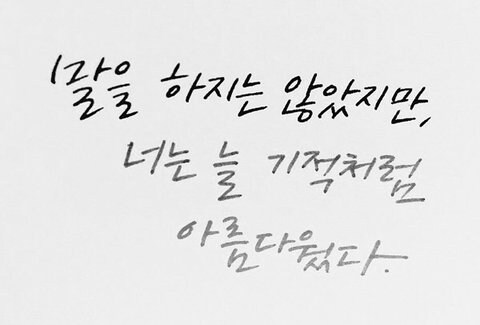 말을 하지는 않았지만,
너는 늘 기적처럼
아름다웠다.